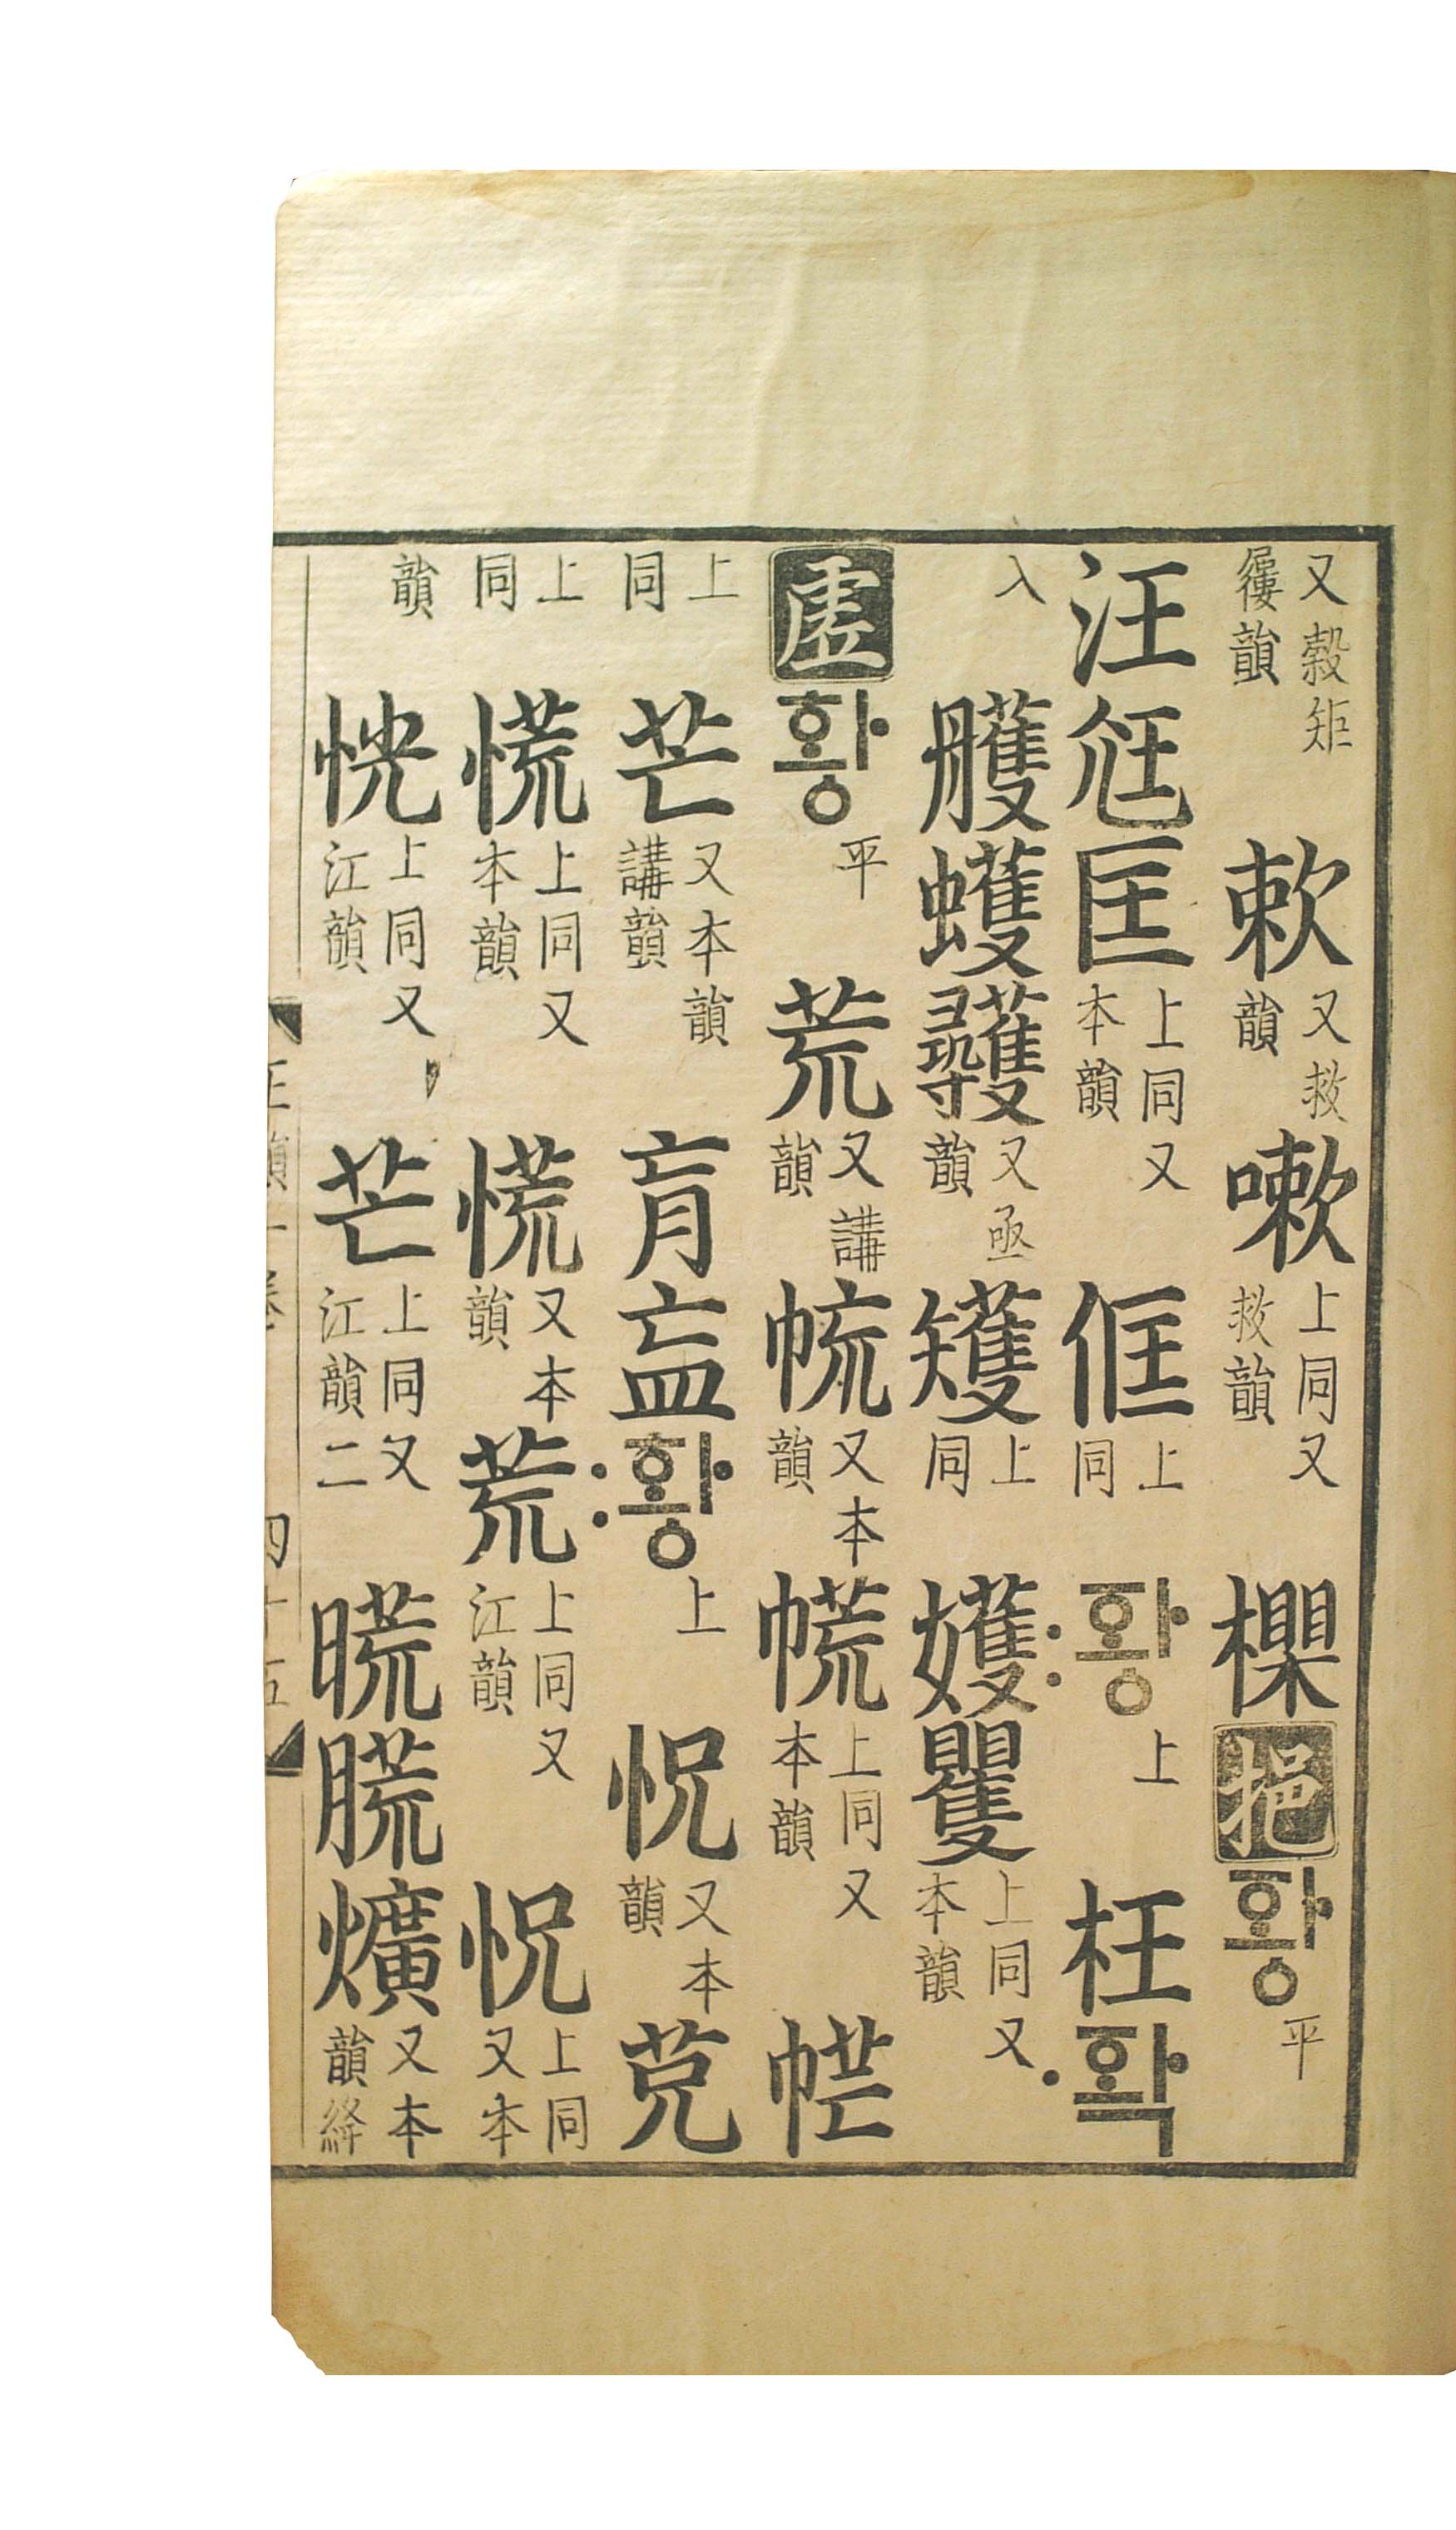 又穀矩屨韻 欶又救韻 嗽上同又救韻 櫻 挹 황平
汪尫匡上同又本韻 俇上同 황上 枉 확
入 艧蠖彠又亟韻 矱上同 嬳矍上同又本韻
虛 황平 荒又講韻 㡆又本韻 㡛上同又本韻
上同 芒又本韻講韻 肓衁 황上 怳又本韻
上同 慌上同又本韻 慌又本韻 荒上同又江韻 怳上同又本
韻 恍上同又江韻 芒上同又江韻二 晾爌又本韻絳
正韻一卷 四十五